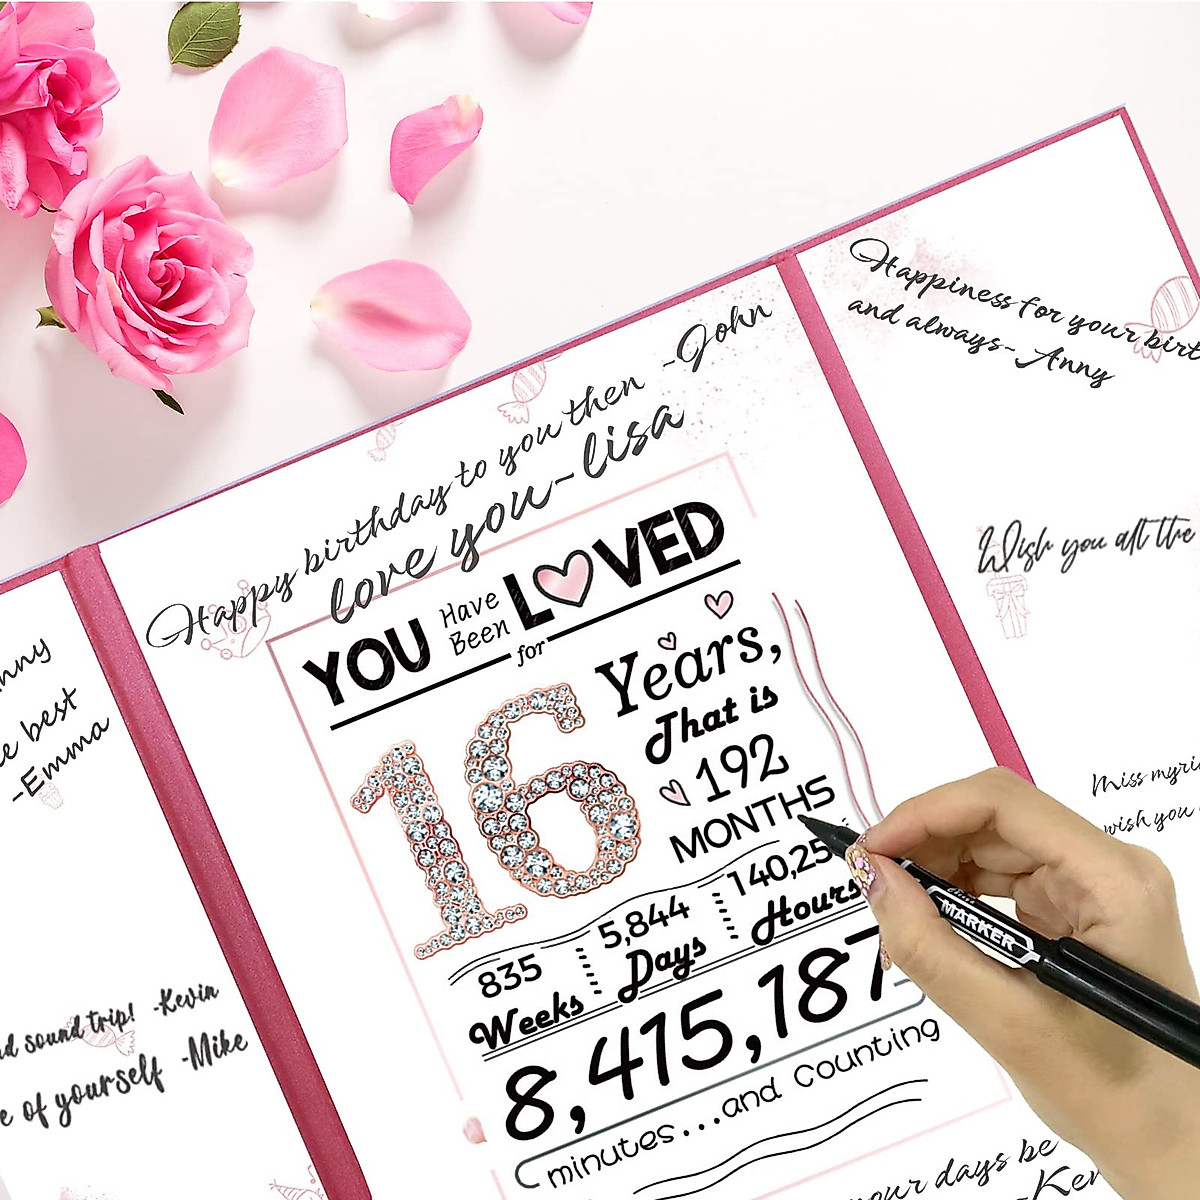 Happy birthday to you then -John
love you-lisa
YOU Have Been LOVED
for
16 Years,
That is
192
MONTHS
835 Weeks
5,844 Days
140,25 Hours
8,415,187
minutes...and Counting
our days be
Happiness for your birt
and always- Anny
Wish you all the
Miss
wish you
nny
e best
-Emma
nd sound trip! -Kevin
e of yourself -Mike
MARKER